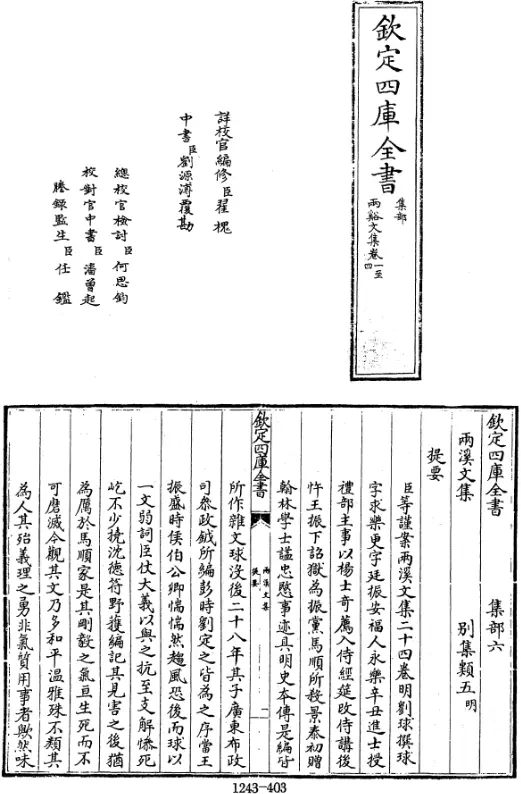 欽定四庫全書
集部
兩谿文集卷一至四
詳校官編修臣翟槐
中書臣劉源溥覆勘
總校官檢討臣何思鈞
校對官中書臣潘曾起
謄錄監生臣任鑑
欽定四庫全書 集部六
兩溪文集 别集類五明
提要
臣等謹案兩溪文集二十四卷明劉球撰球
字求樂更字廷振安福人永樂辛丑進士授
禮部主事以楊士奇薦入侍經筵改侍講後
忤王振下詔獄為振黨馬順所殺景泰初贈
翰林學士諡忠愍事迹具明史本傳是編皆
欽定四庫全書
兩溪文集
提要
一
所作雜文球沒後二十八年其子廣東布政
司參政鉞所編彭時劉定之皆為之序當王
振盛時侯伯公卿惴惴然趨風恐後而球以
一文弱詞臣仗大義以與之抗至支解慘死
屹不少撓沈德符野獲編記其見害之後猶
為厲於馬順家是其剛毅之氣亘生死而不
可磨滅今觀其文乃多和平溫雅殊不類其
為人其殆義理之勇非氣質用事者歟然味
1243-403